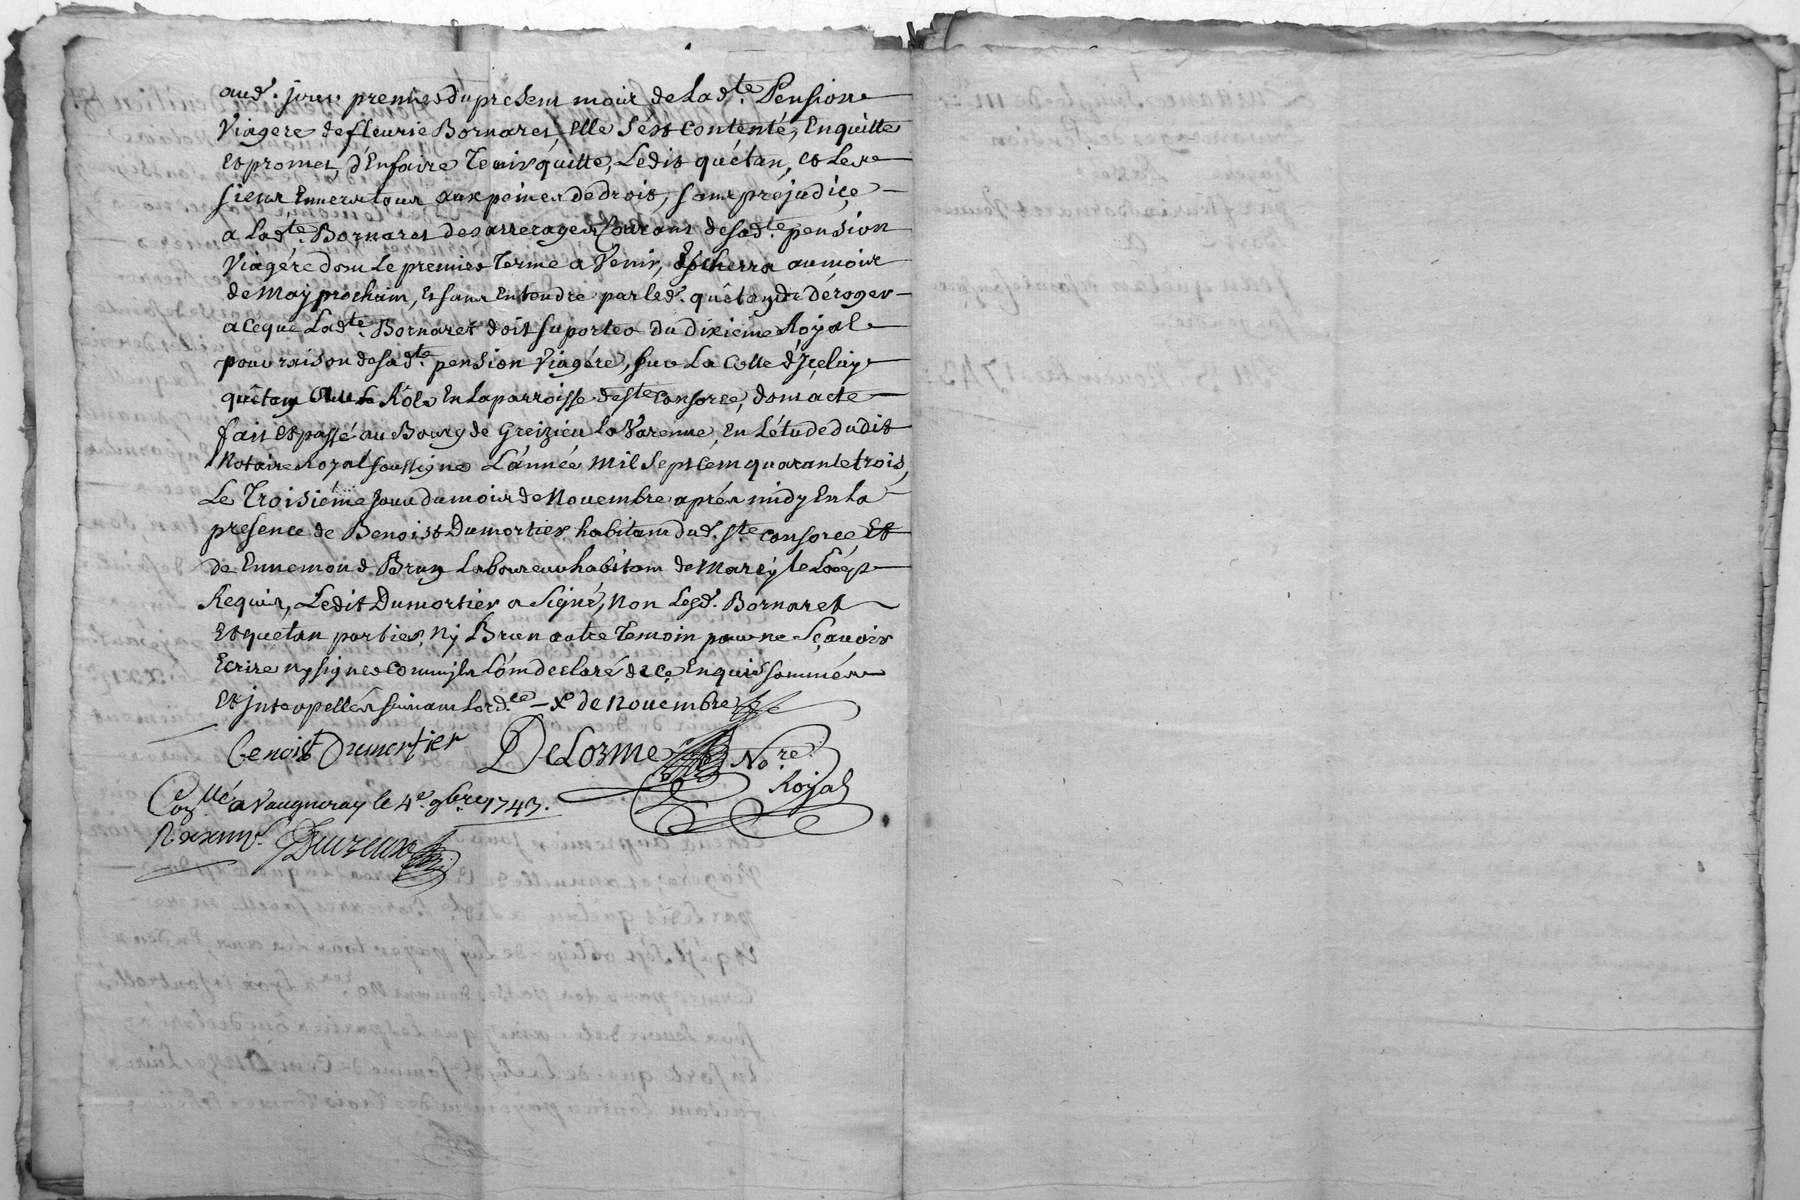 aud. jour premier du present mois de lad.te Pension
Viagere de fleurie Bornaret, Elle s'est Contenté, En quitte
et promet, d'En faire Tenir quitte, Ledit quétan, et Les
siens Envers tous aux peines de droit, sans préjudice
a Lad.te Bornaret des arrerages Courans de sad.te pension
Viagére dont Le premier terme a Venir, Escherra au mois
de May prochain, Et sans Entendre par led. quêtan de déroger
a Ce que Lad.te Bornaret doit suporter du dixieme Royal
pour raison de sad.te pension Viagére, sur La Cotte d'Jceluy
quêtan Rôle En La parroisse de ste Consorce, dont acte
fait et passé au Bourg de Greizieu la Varenne, En L'étude dudit
Notaire Royal soussigné L'année mil sept Cent quarante trois,
Le Troisiéme Jour du mois de Novembre aprés midy En la
presence de Benoist Dumortier habitant dud. ste Consorce, Et
de Ennemond Brun Laboureur habitant de Marcy le Loup
Requis, Ledit Dumortier a signé, Non Lesd. Bornaret
Et quetan parties, Ny Brun autre Temoin pour ne sçavoir
Ecrire ny signer Comm'jls L'ont declaré de ce Enquis sommés
Et jnterpellés suivant Lord.ce de Novembre
benoist Dumortier DeLorme No.re
Royal
Con.llé a Vaugneray le 4e. 9bre 1743.